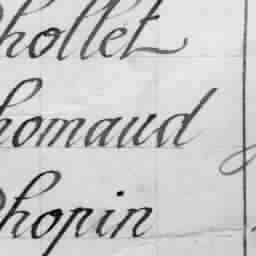 Chollet
Chomaud
Chopin